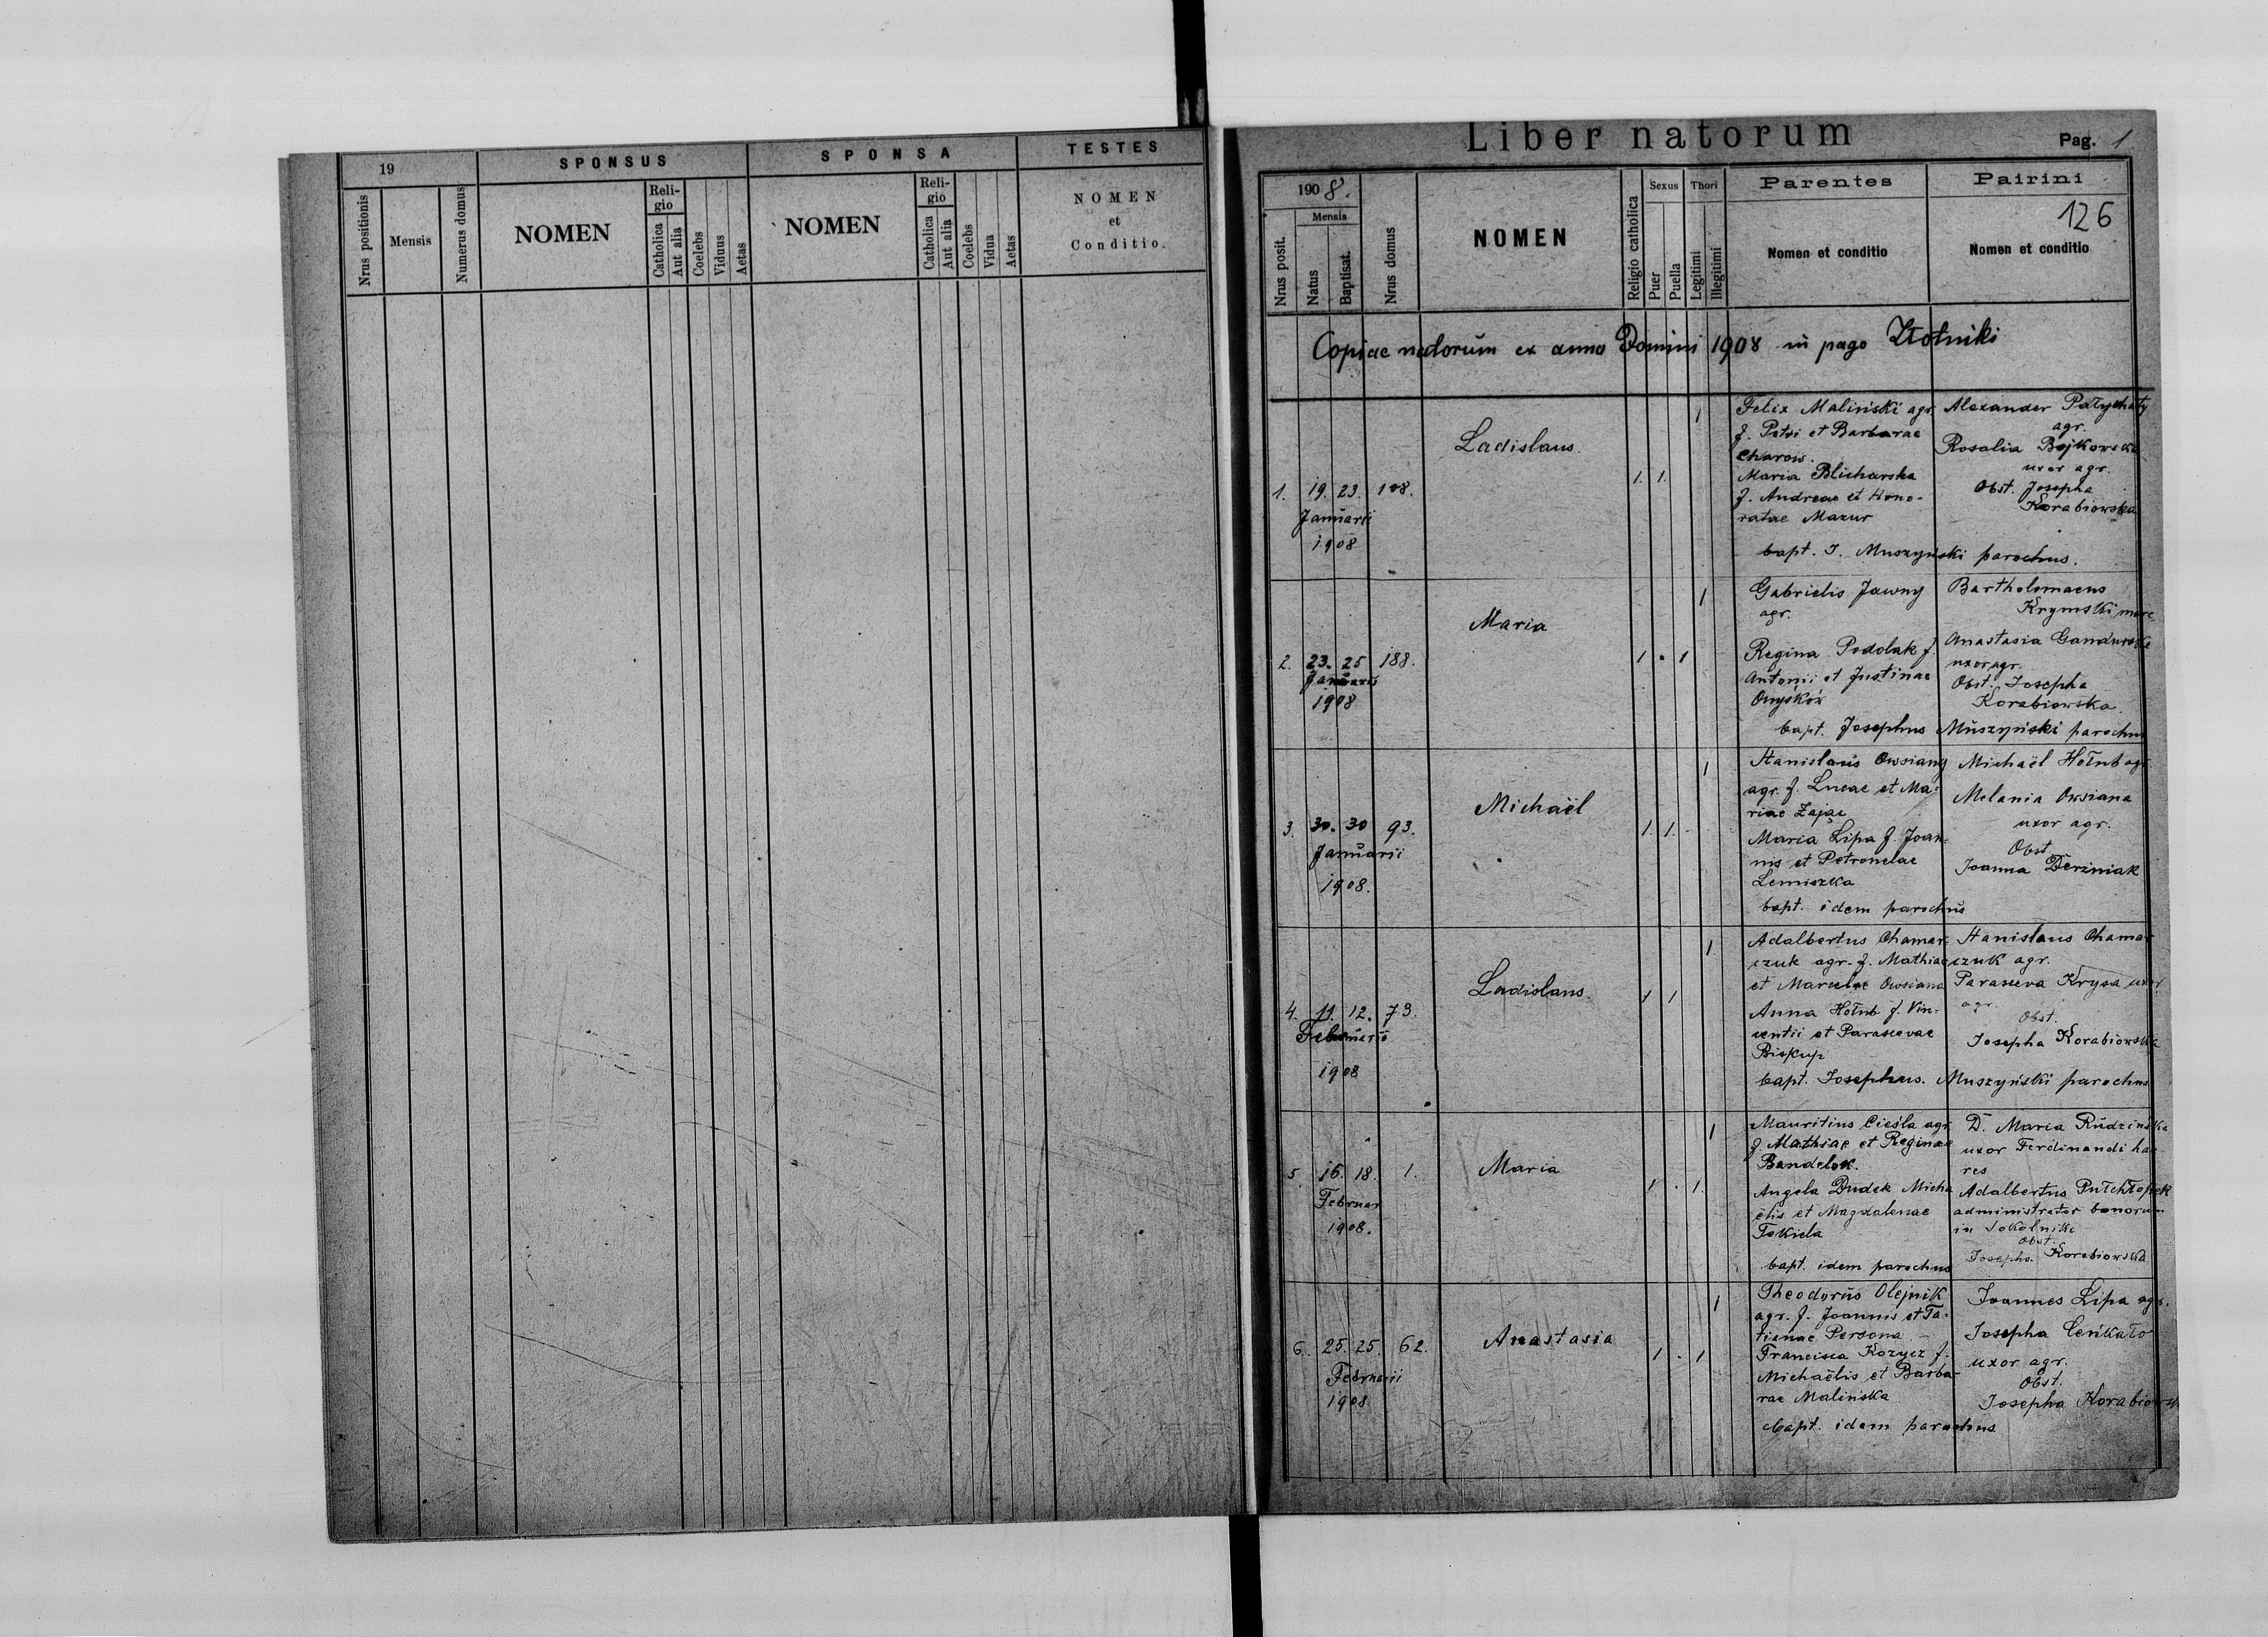 19
SPONSUS
SPONSA
TESTES
Nrus positionis
Mensis
Numerus domus
NOMEN
Reli-
gio
Catholica
Aut alia
Coelebs
Vidus
Aetas
NOMEN
Reli-
gio
Catholica
Aut alia
Coelebs
Vidua
Aetas
NOMEN
et
Conditio.
Liber natorum
Pag. 1
1908.
Mensis
Nrus posit.
Natus
Baptisat.
Nrus domus
NOMEN
Religio catholica
Sexus
Puer
Puella
Thori
Legitimi
Illegitimi
Parentes
Nomen et conditio
Pairini
126
Nomen et conditio
Copiae natorum ex anno Domini 1908 in pago Złotniki
1. 19. 23. 108.
Januarii
1908
Ladislaus.
1. 1. 1
Felix Maliński agr.
f. Petri et Barbarae
Charow.
Maria Blicharska
f. Andreae et Hono-
ratae Mazur
Alexander Patychaty
agr.
Rosalia Bojkowska
uxor agr.
Obst. Josepha
Korabiowska
bapt. J. Muszyński parochus.
2. 23. 25 188.
Januarii
1908
Maria
1 . 1 1
Gabrielis Jawny
agr.
Regina Podolak f.
Antonii et Justinae
Onyśków
Bartholomaeus
Krymski merc
Anastasia Gandurska
uxor agr.
Obst. Josepha
Korabiowska.
bapt. Josephus Muszyński parochus
3. 30. 30 93.
Januarii
1908.
Michaël
1. 1. 1
Stanislaus Owsiany
agr. f. Lucae et Ma-
riae Zając
Maria Lipa f. Joan-
nis et Petronelae
Lemiszka
Michaël Hołub agr.
Melania Owsiana
uxor agr.
Obst
Joanna Derzniak
bapt. idem parochus
4. 11. 12. 73.
Februarii
1908
Ladislaus.
1 1 1
Adalbertus Chamar-
czuk agr. f. Mathiae
et Marcelae Owsiana
Anna Hołub f. Vin-
centii et Parascevae
Biskup
Stanislaus Chamar
czuk agr.
Parasceva Krysa uxor
agr.
Obst.
Josepha Korabiowska
bapt. Josephus. Muszyński parochus
5. 16. 18. 1.
Februar
1908.
Maria
1 . 1. 1
Mauritius Cieśla agr
f. Mathiae et Reginae
Bandelok.
Angela Dudek Micha
ëlis et Magdalenae
Tokiela
D. Maria Rudzińska
uxor Ferdinandi hae
res
Adalbertus
administrator bonorum
in Sokolniki
Obst.
Josepha Korabiowska
bapt. idem parochus
6. 25. 25. 62.
Februarii
1908
Anastasia
1 . 1 1
Theodorus Olejnik
agr. f. Joannis et Ta-
tianae Persona
Francisca Kozycz f.
Michaëlis et Barba-
rae Malińska
Joannes Lipa agr.
Josepha Ceńkało
uxor agr.
Obst.
Josepha Korabiowska
bapt. idem parochus